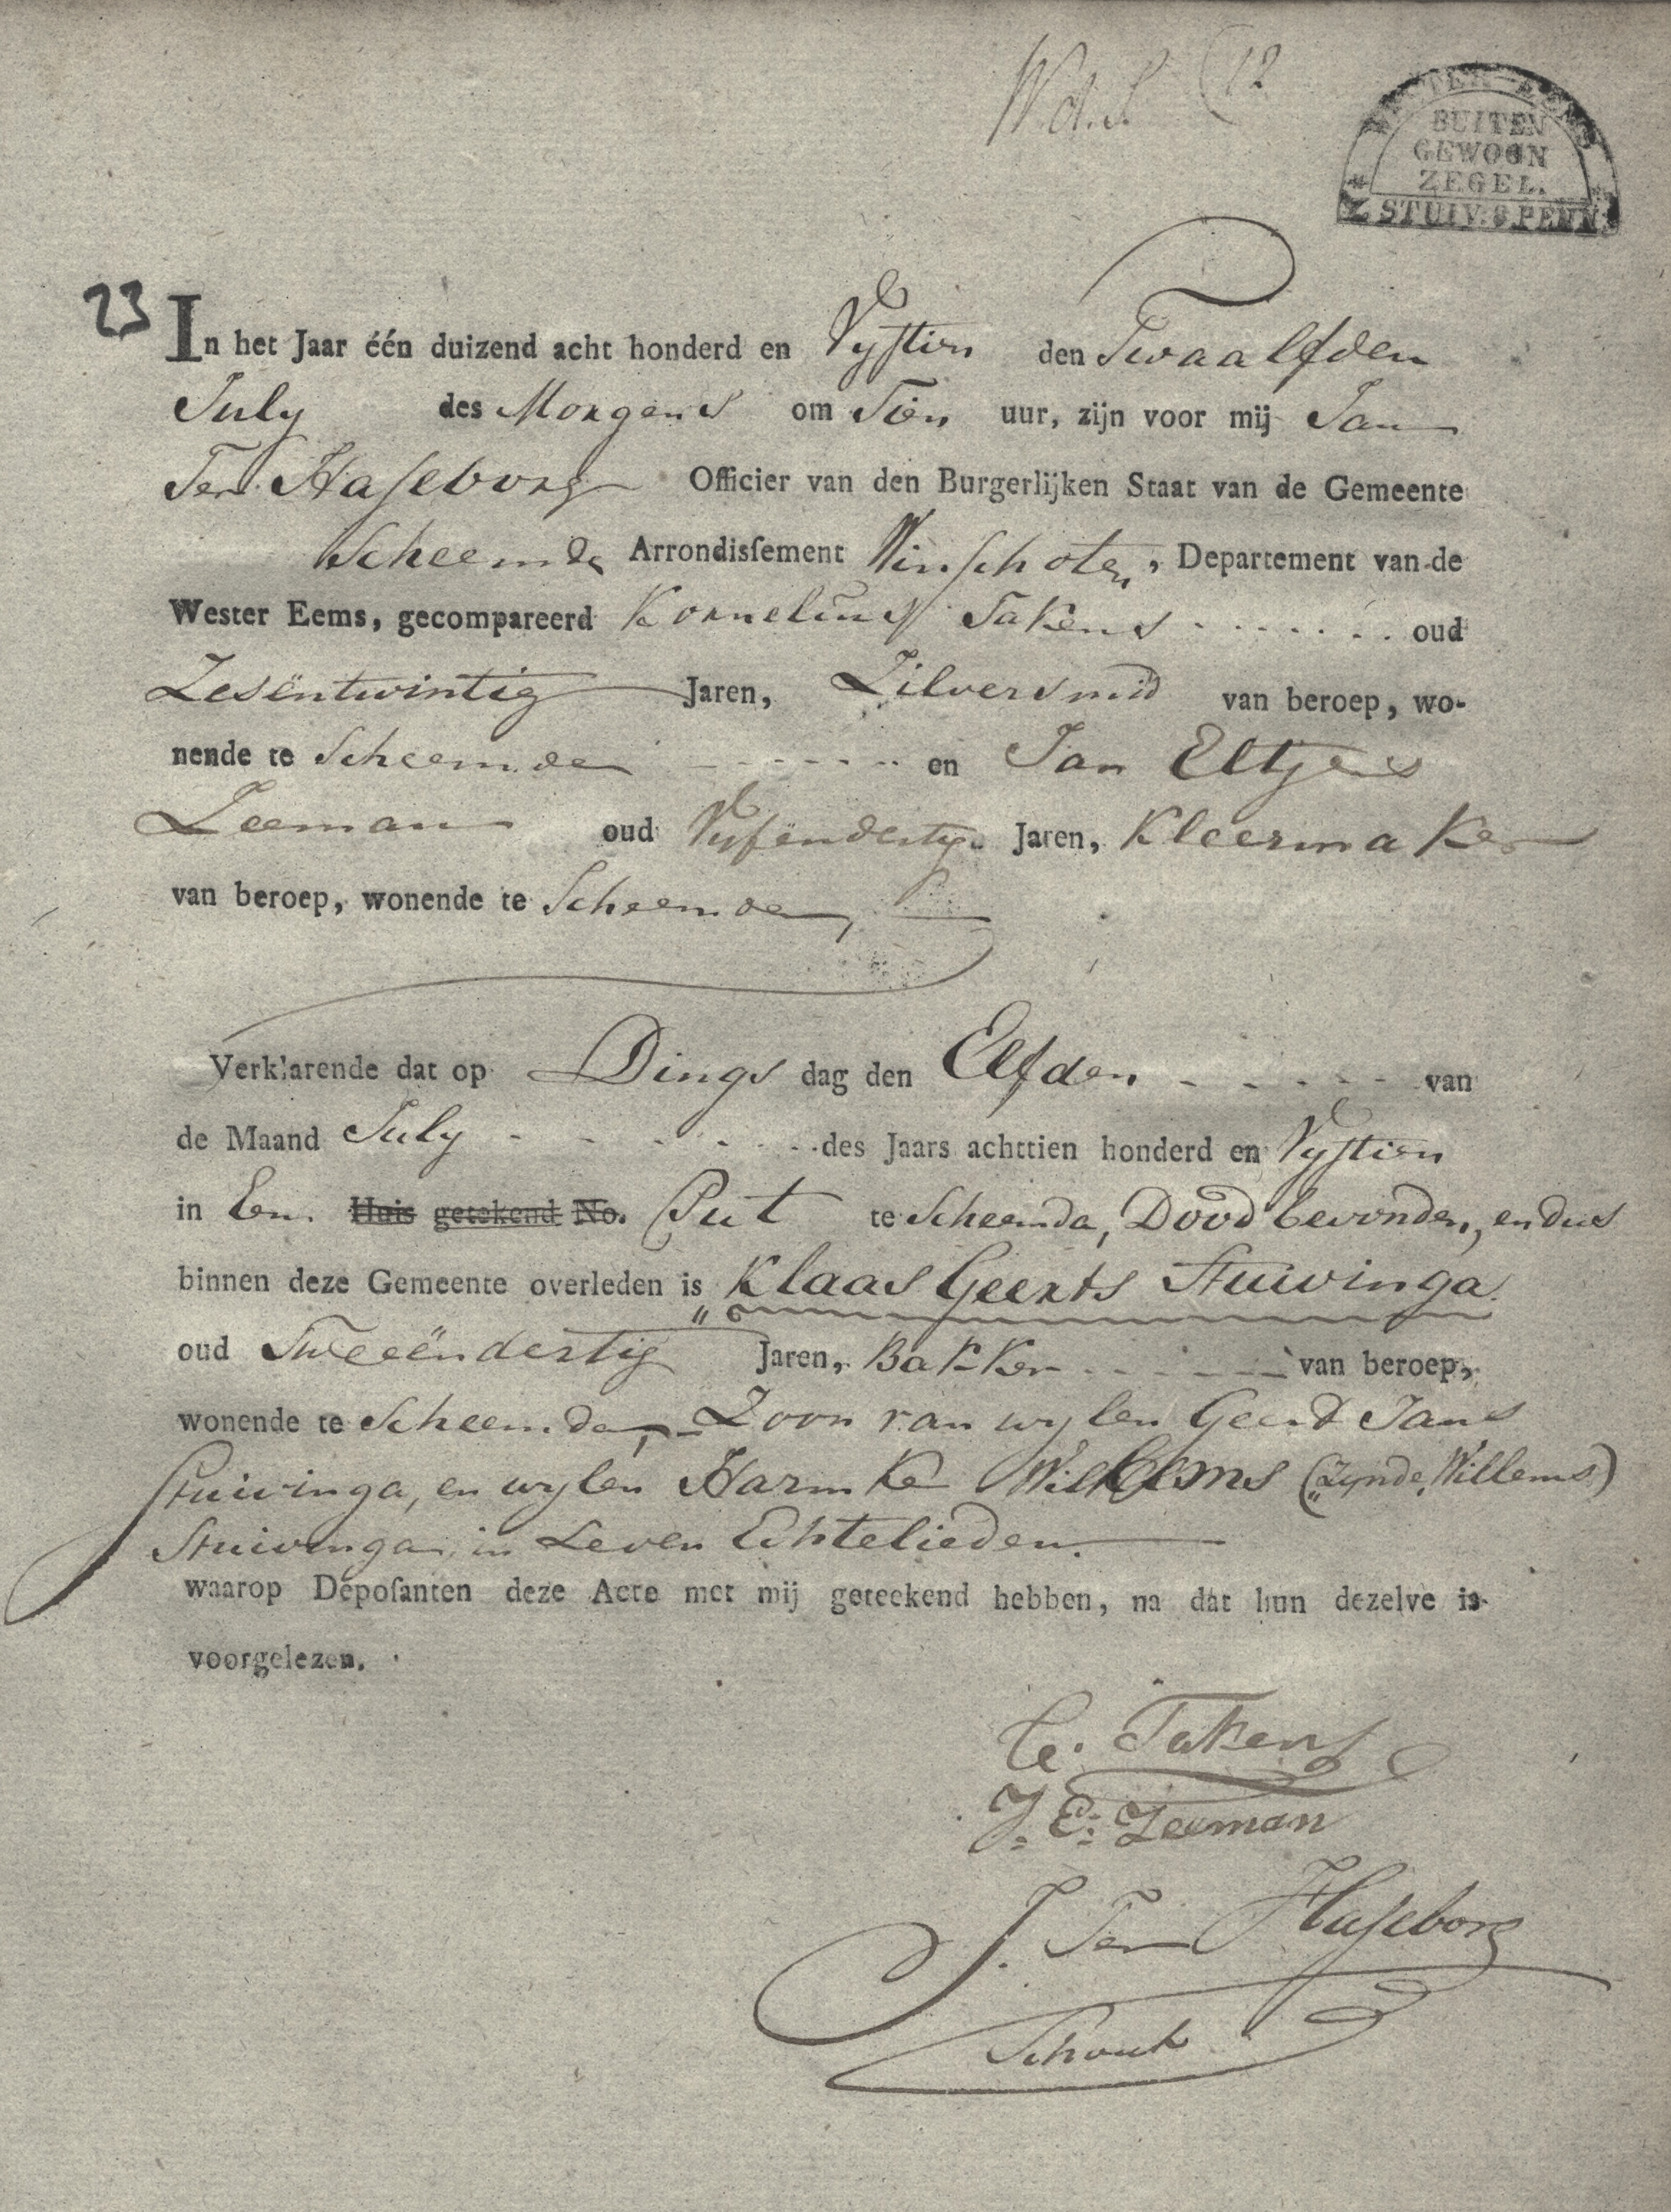 W.d.S. (12
WESTER EEMS
BUITEN
GEWOON
ZEGEL.
STUIV: 8 PENN:
23 In het Jaar één duizend acht honderd en Vyftien den Twaalfden
July des Morgens om Tien uur, zijn voor mij Jan
Ter Haseborg Officier van den Burgerlijken Staat van de Gemeente
Scheemda Arrondissement Winschoten, Departement van de
Wester Eems, gecompareerd Kornelius Takens oud
Zesëntwintig Jaren, Zilversmid van beroep, wo-
nende te Scheemda en Jan Eltjens
Zeeman oud Vyfendertig Jaren, Kleermaker
van beroep, wonende te Scheemda,
Verklarende dat op Dings dag den Elfden van
de Maand July des Jaars achttien honderd en Vyftien
in Een Huis getekend No. Put te Scheemda, Dood bevonden, en dus
binnen deze Gemeente overleden is Klaas Geerts Stuivinga
oud Tweeëndertig Jaren, Bakker van beroep,
wonende te Scheemda, Zoon van wylen Geert Jans
Stuivinga, en wylen Harmke Willems (zynde Willems)
Stuivinga in Leven Echtelieden.
waarop Deposanten deze Acte met mij geteekend hebben, na dat hun dezelve is
voorgelezen.
C. Takens
J. E. Zeeman
J. Ter Haseborg
Schout